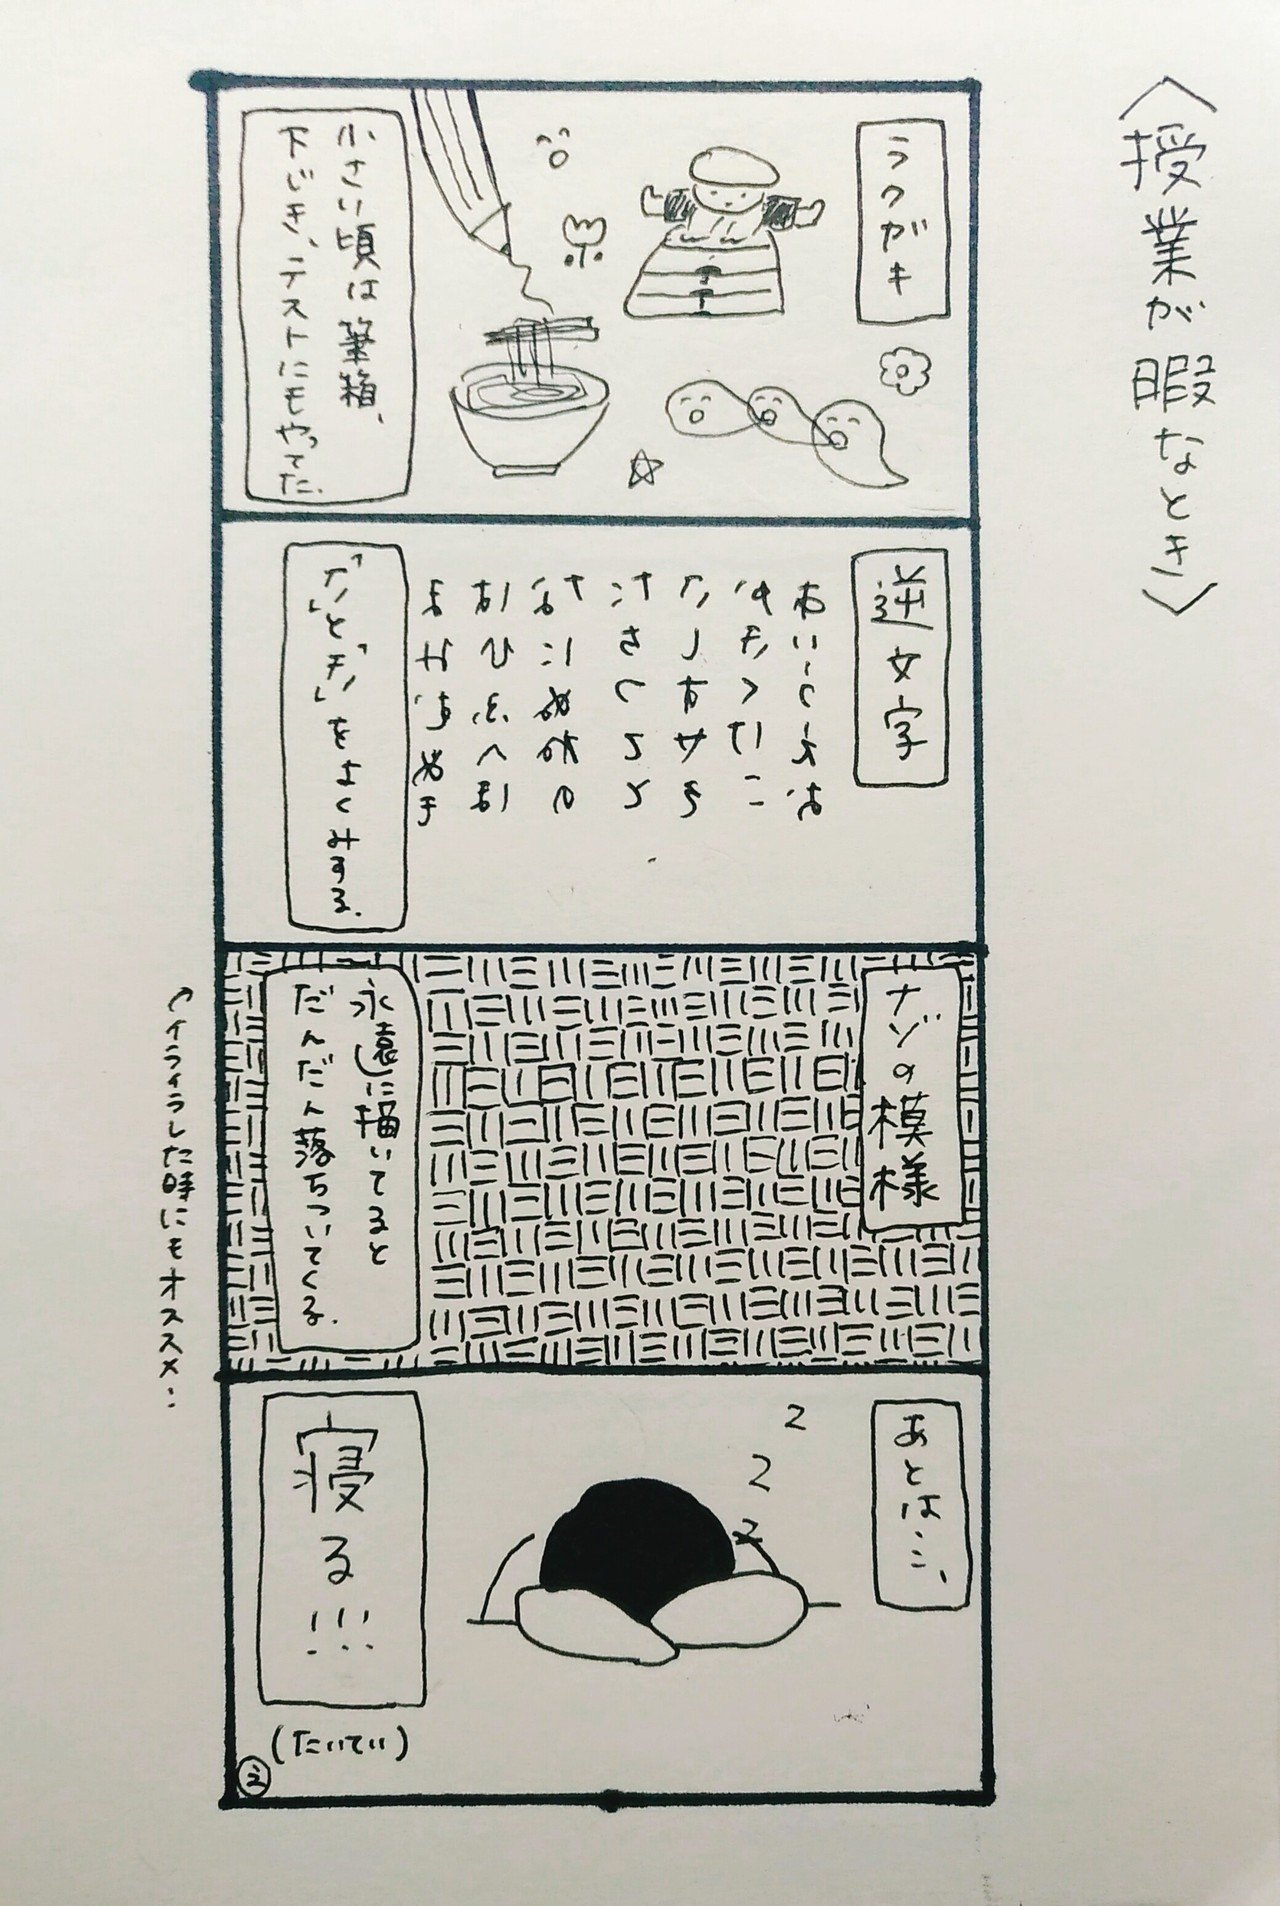 〈授業が暇なとき〉
ラクガキ
小さい頃は筆箱、
下じき、テストにもやってた.
逆文字
あいうえお
かきくけこ
さしすせそ
たちつてと
なにぬねの
はひふへほ
まみむめも
「さ」と「き」をよくみする.
ナゾの模様
永遠に描いてると
だんだん落ちついてくる.
イライラした時にもオススメ:
あとは…、
zzz
寝る!!!
(たいてい)
え